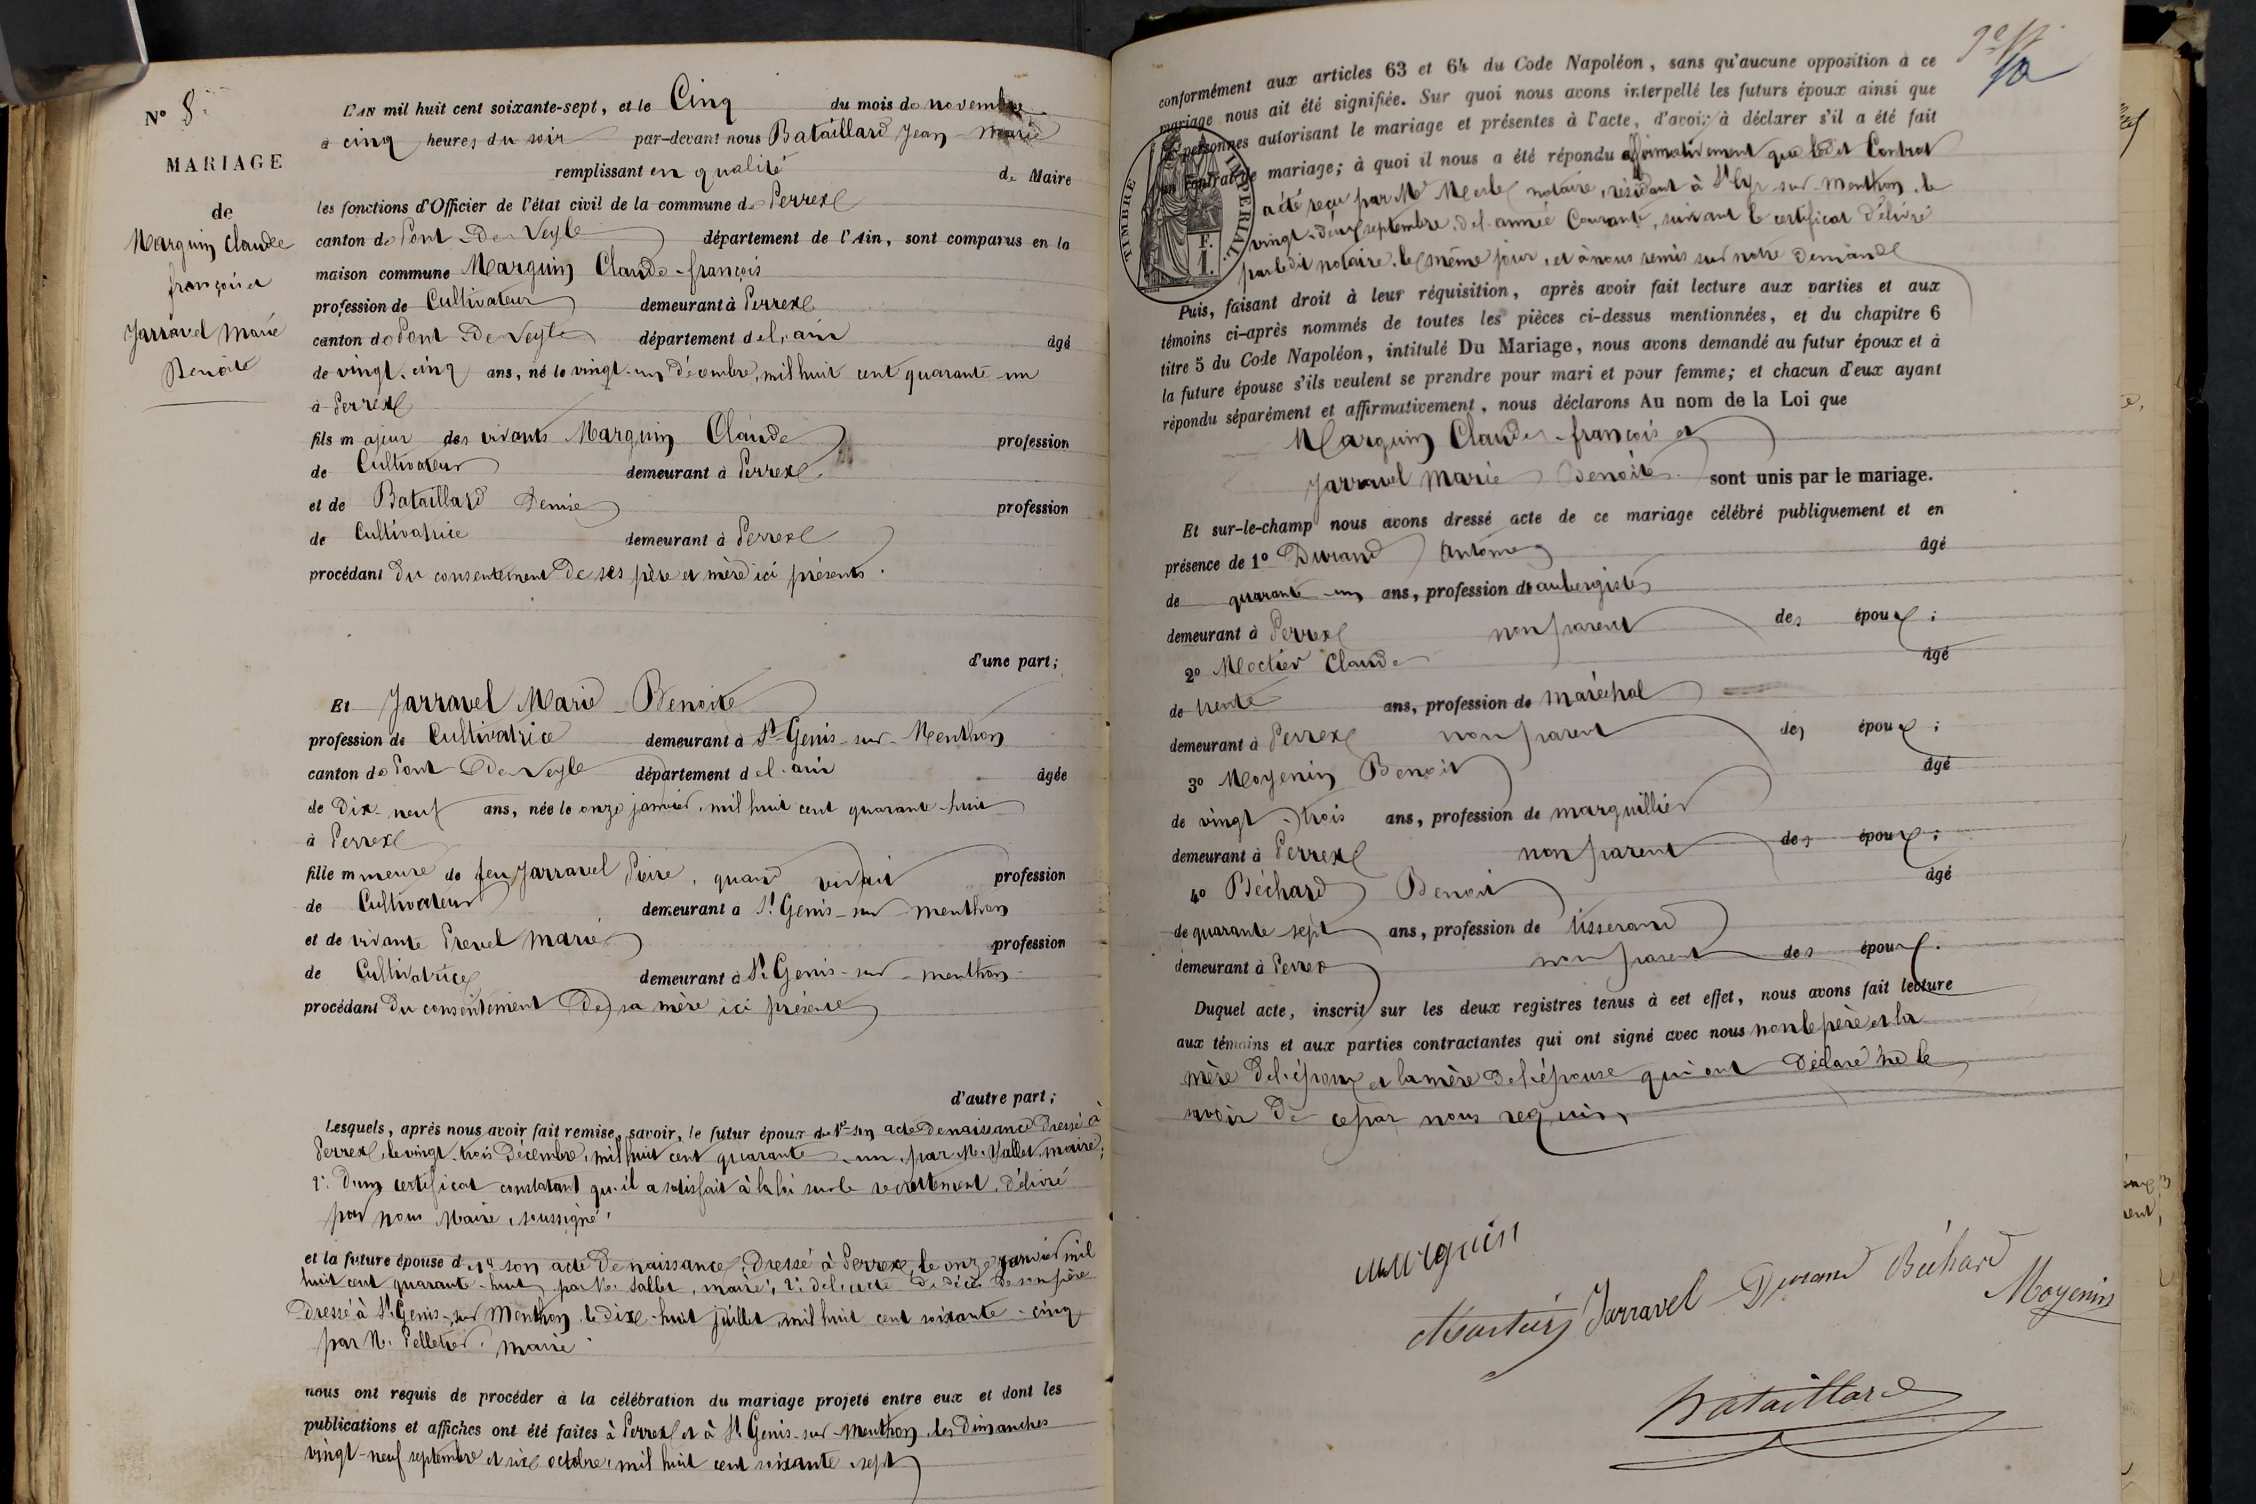 N° 8.
MARIAGE
de
Marguin Claude
françois et
Jarravel Marie
Benoite
L'AN mil huit cent soixante-sept, et le Cinq du mois de novembre
à cinq heures du soir par-devant nous Bataillard Jean-Marie
remplissant en qualité de Maire
les fonctions d'Officier de l'état civil de la commune de Perrex
canton de Pont-De-Veyle département de l'Ain, sont comparus en la
maison commune Marguin Claude-françois
profession de Cultivateur demeurant à Perrex
canton de Pont-De-Veyle département de l'ain âgé
de vingt-cinq ans, né le vingt-un Décembre, mil huit cent quarante-un
à Perrex
fils majeur des vivants Marguin Claude profession
de Cultivateur demeurant à Perrex
et de Bataillard Denise profession
de Cultivatrice demeurant à Perrex
procédant du consentement De ses père et mère ici présents.
d'une part;
Et Jarravel Marie-Benoite
profession de Cultivatrice demeurant à St Genis-sur-Menthon
canton de Pont-De-Veyle département de l'ain âgée
de Dix-neuf ans, née le onze janvier, mil huit cent quarante-huit
à Perrex
fille mineure de feu Jarravel Pierre, quand vivait profession
de Cultivateur demeurant à St Genis-sur-menthon
et de vivante Prevel marie profession
de Cultivatrice demeurant à St Genis-sur-menthon
procédant du consentement De sa mère ici présente
d'autre part;
Lesquels, après nous avoir fait remise, savoir, le futur époux de 1° son acte De naissance Dressé à
Perrex, le vingt-trois Décembre, mil huit cent quarante-un, par M. Vallet, maire;
2° D'un certificat constatant qu'il a satisfait à la loi sur le recrutement, Délivré
par nous Maire, soussigné,
et la future épouse de 1° son acte De naissance, Dressé à Perrex, le onze janvier mil
huit cent quarante-huit, par M. Vallet, maire; 2° de l'acte De décès De son père
Dressé à St Genis-sur Menthon, le dix-huit juillet, mil huit cent soixante-cinq
par M. Pelletier, maire
nous ont requis de procéder à la célébration du mariage projeté entre eux et dont les
publications et affiches ont été faites à Perrex et à St Genis-sur-Menthon, les Dimanches
vingt-neuf septembre et six octobre, mil huit cent soixante-sept
conformément aux articles 63 et 64 du Code Napoléon, sans qu'aucune opposition à ce
mariage nous ait été signifiée. Sur quoi nous avons interpellé les futurs époux ainsi que
les personnes autorisant le mariage et présentes à l'acte, d'avoir à déclarer s'il a été fait
un contrat de mariage; à quoi il nous a été répondu affirmativement que ledit Contrat
a été reçu par Me Merle, notaire, résidant à St Cyr-sur-Menthon, le
vingt-deux septembre, de l'année Courante, suivant le certificat Délivré
par ledit notaire, le même jour, et à nous remis sur notre Demande
TIMBRE IMPERIAL
1 F.
Puis, faisant droit à leur réquisition, après avoir fait lecture aux parties et aux
témoins ci-après nommés de toutes les pièces ci-dessus mentionnées, et du chapitre 6
titre 5 du Code Napoléon, intitulé Du Mariage, nous avons demandé au futur époux et à
la future épouse s'ils veulent se prendre pour mari et pour femme; et chacun d'eux ayant
répondu séparément et affirmativement, nous déclarons Au nom de la Loi que
Marguin Claude-françois et
Jarravel Marie Benoite sont unis par le mariage.
Et sur-le-champ nous avons dressé acte de ce mariage célébré publiquement et en
présence de 1° Durand Antoine âgé
de quarante-un ans, profession de aubergiste
demeurant à Perrex non parent des époux;
2° Moctier Claude âgé
de trente ans, profession de maréchal
demeurant à Perrex non parent des époux;
3° Moyenin Benoit âgé
de vingt-trois ans, profession de marguillier
demeurant à Perrex non parent des époux;
4° Béchard Benoit âgé
de quarante-sept ans, profession de tisserand
demeurant à Perrex non parent des époux.
Duquel acte, inscrit sur les deux registres tenus à cet effet, nous avons fait lecture
aux témoins et aux parties contractantes qui ont signé avec nous non le père et la
mère De l'époux et la mère De l'épouse qui ont Déclaré ne le
savoir De ce par nous requis.
marguin
Jarravel Durand Béchard
Moyenin
Bataillard